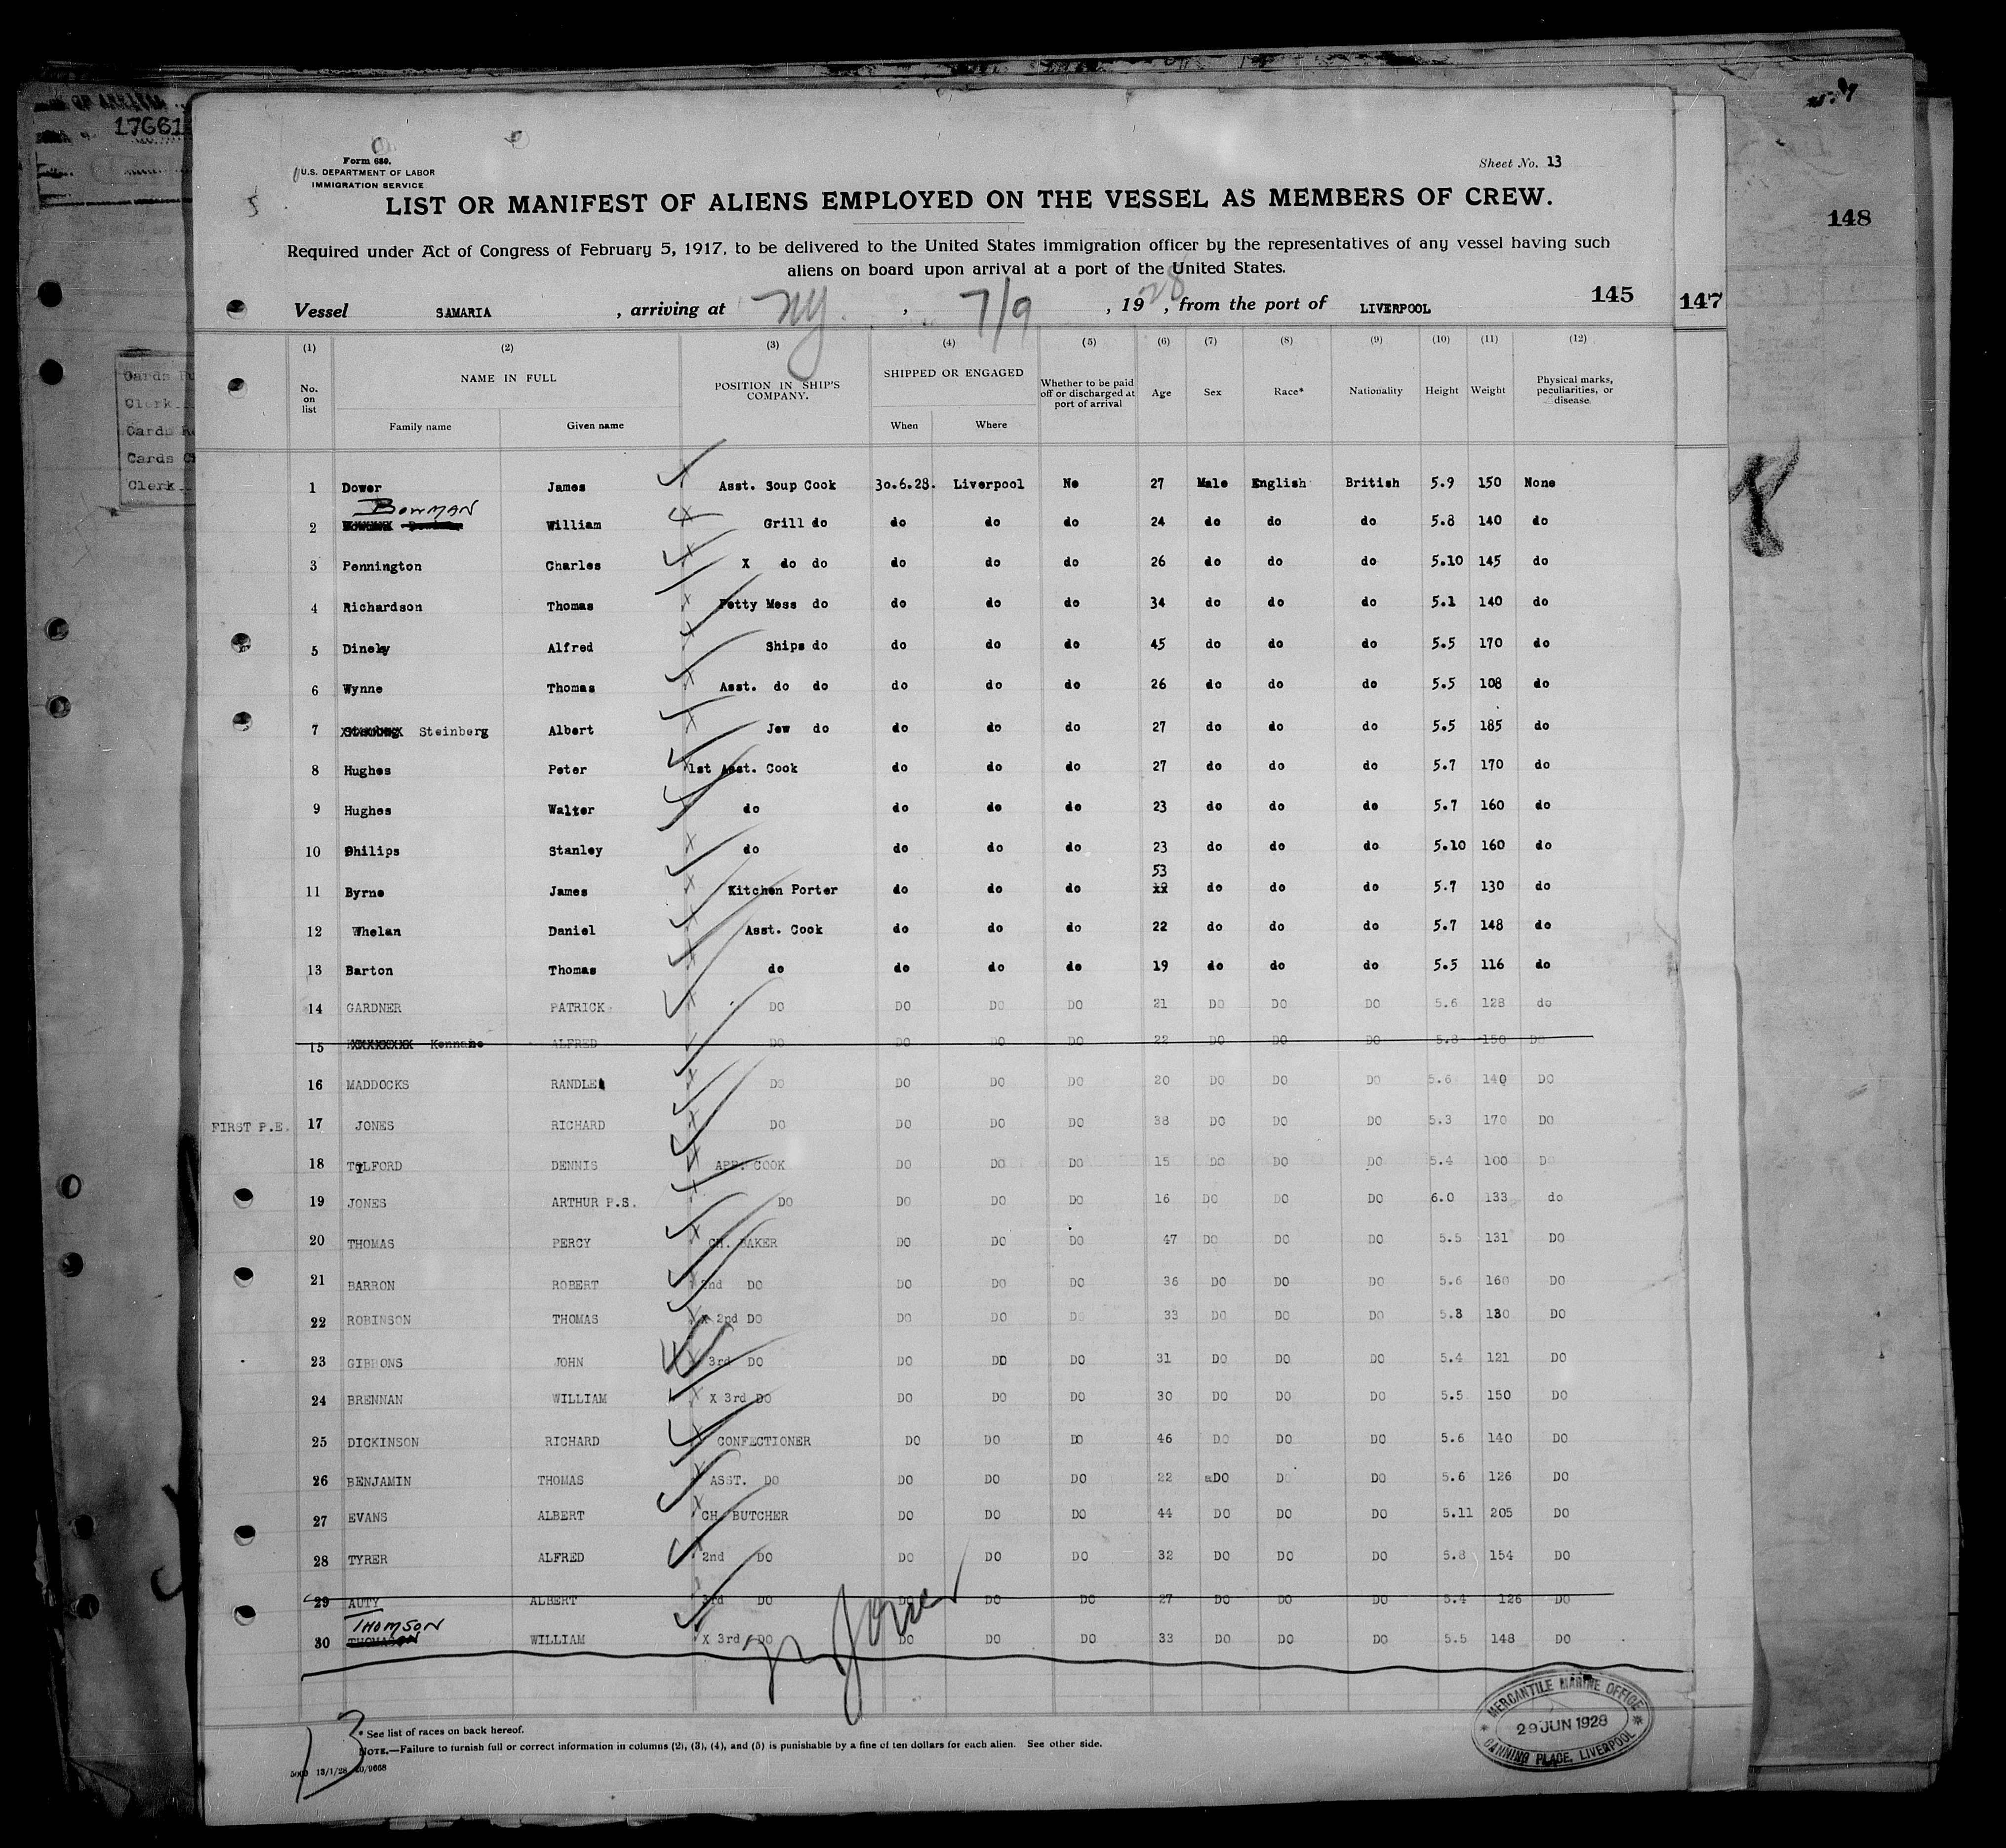 17661
148
Cards
Clerk
Cards
Cards
Clerk
Form 680.
U.S. DEPARTMENT OF LABOR
IMMIGRATION SERVICE
Sheet No. 13
LIST OR MANIFEST OF ALIENS EMPLOYED ON THE VESSEL AS MEMBERS OF CREW.
Required under Act of Congress of February 5, 1917, to be delivered to the United States immigration officer by the representatives of any vessel having such
aliens on board upon arrival at a port of the United States.
145 147
Vessel SAMARIA , arriving at NY. , 7/9 , 1928 , from the port of LIVERPOOL
(1) (2) (3) (4) (5) (6) (7) (8) (9) (10) (11) (12)
No. on list NAME IN FULL POSITION IN SHIP'S COMPANY. SHIPPED OR ENGAGED Whether to be paid off or discharged at port of arrival Age Sex Race* Nationality Height Weight Physical marks, peculiarities, or disease.
Family name Given name When Where
1 Dower James Asst. Soup Cook 30.6.28. Liverpool No 27 Male English British 5.9 150 None
2 BOWMAN William Grill do do do do 24 do do do 5.8 140 do
3 Pennington Charles X do do do do do 26 do do do 5.10 145 do
4 Richardson Thomas Petty Mess do do do do 34 do do do 5.1 140 do
5 Dinely Alfred Ships do do do do 45 do do do 5.5 170 do
6 Wynne Thomas Asst. do do do do do 26 do do do 5.5 108 do
7 Steinberg Albert Jew do do do do 27 do do do 5.5 185 do
8 Hughes Peter 1st Asst. Cook do do do 27 do do do 5.7 170 do
9 Hughes Walter do do do do 23 do do do 5.7 160 do
10 Philips Stanley do do do do 23 do do do 5.10 160 do
11 Byrne James Kitchen Porter do do do 53 do do do 5.7 130 do
12 Whelan Daniel Asst. Cook do do do 22 do do do 5.7 148 do
13 Barton Thomas do do do do 19 do do do 5.5 116 do
14 GARDNER PATRICK DO DO DO DO 21 DO DO DO 5.6 128 do
15 XXXXXXXX Kennane ALFRED DO DO DO DO 22 DO DO DO 5.8 150 DO
16 MADDOCKS RANDLE DO DO DO DO 20 DO DO DO 5.6 140 DO
FIRST P.E. 17 JONES RICHARD DO DO DO DO 38 DO DO DO 5.3 170 DO
18 TILFORD DENNIS APP. COOK DO DO DO 15 DO DO DO 5.4 100 DO
19 JONES ARTHUR P.S. DO DO DO DO 16 DO DO DO 6.0 133 do
20 THOMAS PERCY CH. BAKER DO DO DO 47 DO DO DO 5.5 131 DO
21 BARRON ROBERT 2nd DO DO DO DO 36 DO DO DO 5.6 160 DO
22 ROBINSON THOMAS X 2nd DO DO DO DO 33 DO DO DO 5.8 130 DO
23 GIBBONS JOHN 3rd DO DO DO DO 31 DO DO DO 5.4 121 DO
24 BRENNAN WILLIAM X 3rd DO DO DO DO 30 DO DO DO 5.5 150 DO
25 DICKINSON RICHARD CONFECTIONER DO DO DO 46 DO DO DO 5.6 140 DO
26 BENJAMIN THOMAS ASST. DO DO DO DO 22 DO DO DO 5.6 126 DO
27 EVANS ALBERT CH. BUTCHER DO DO DO 44 DO DO DO 5.11 205 DO
28 TYRER ALFRED 2nd DO DO DO DO 32 DO DO DO 5.8 154 DO
29 AUTY ALBERT 3rd DO DO DO DO 27 DO DO DO 5.4 126 DO
30 THOMSON WILLIAM X 3rd DO DO DO DO 33 DO DO DO 5.5 148 DO
MERCANTILE MARINE OFFICE
29 JUN 1928
CANNING PLACE, LIVERPOOL
13
* See list of races on back hereof.
NOTE.—Failure to furnish full or correct information in columns (2), (3), (4), and (5) is punishable by a fine of ten dollars for each alien. See other side.
5000 13/1/28